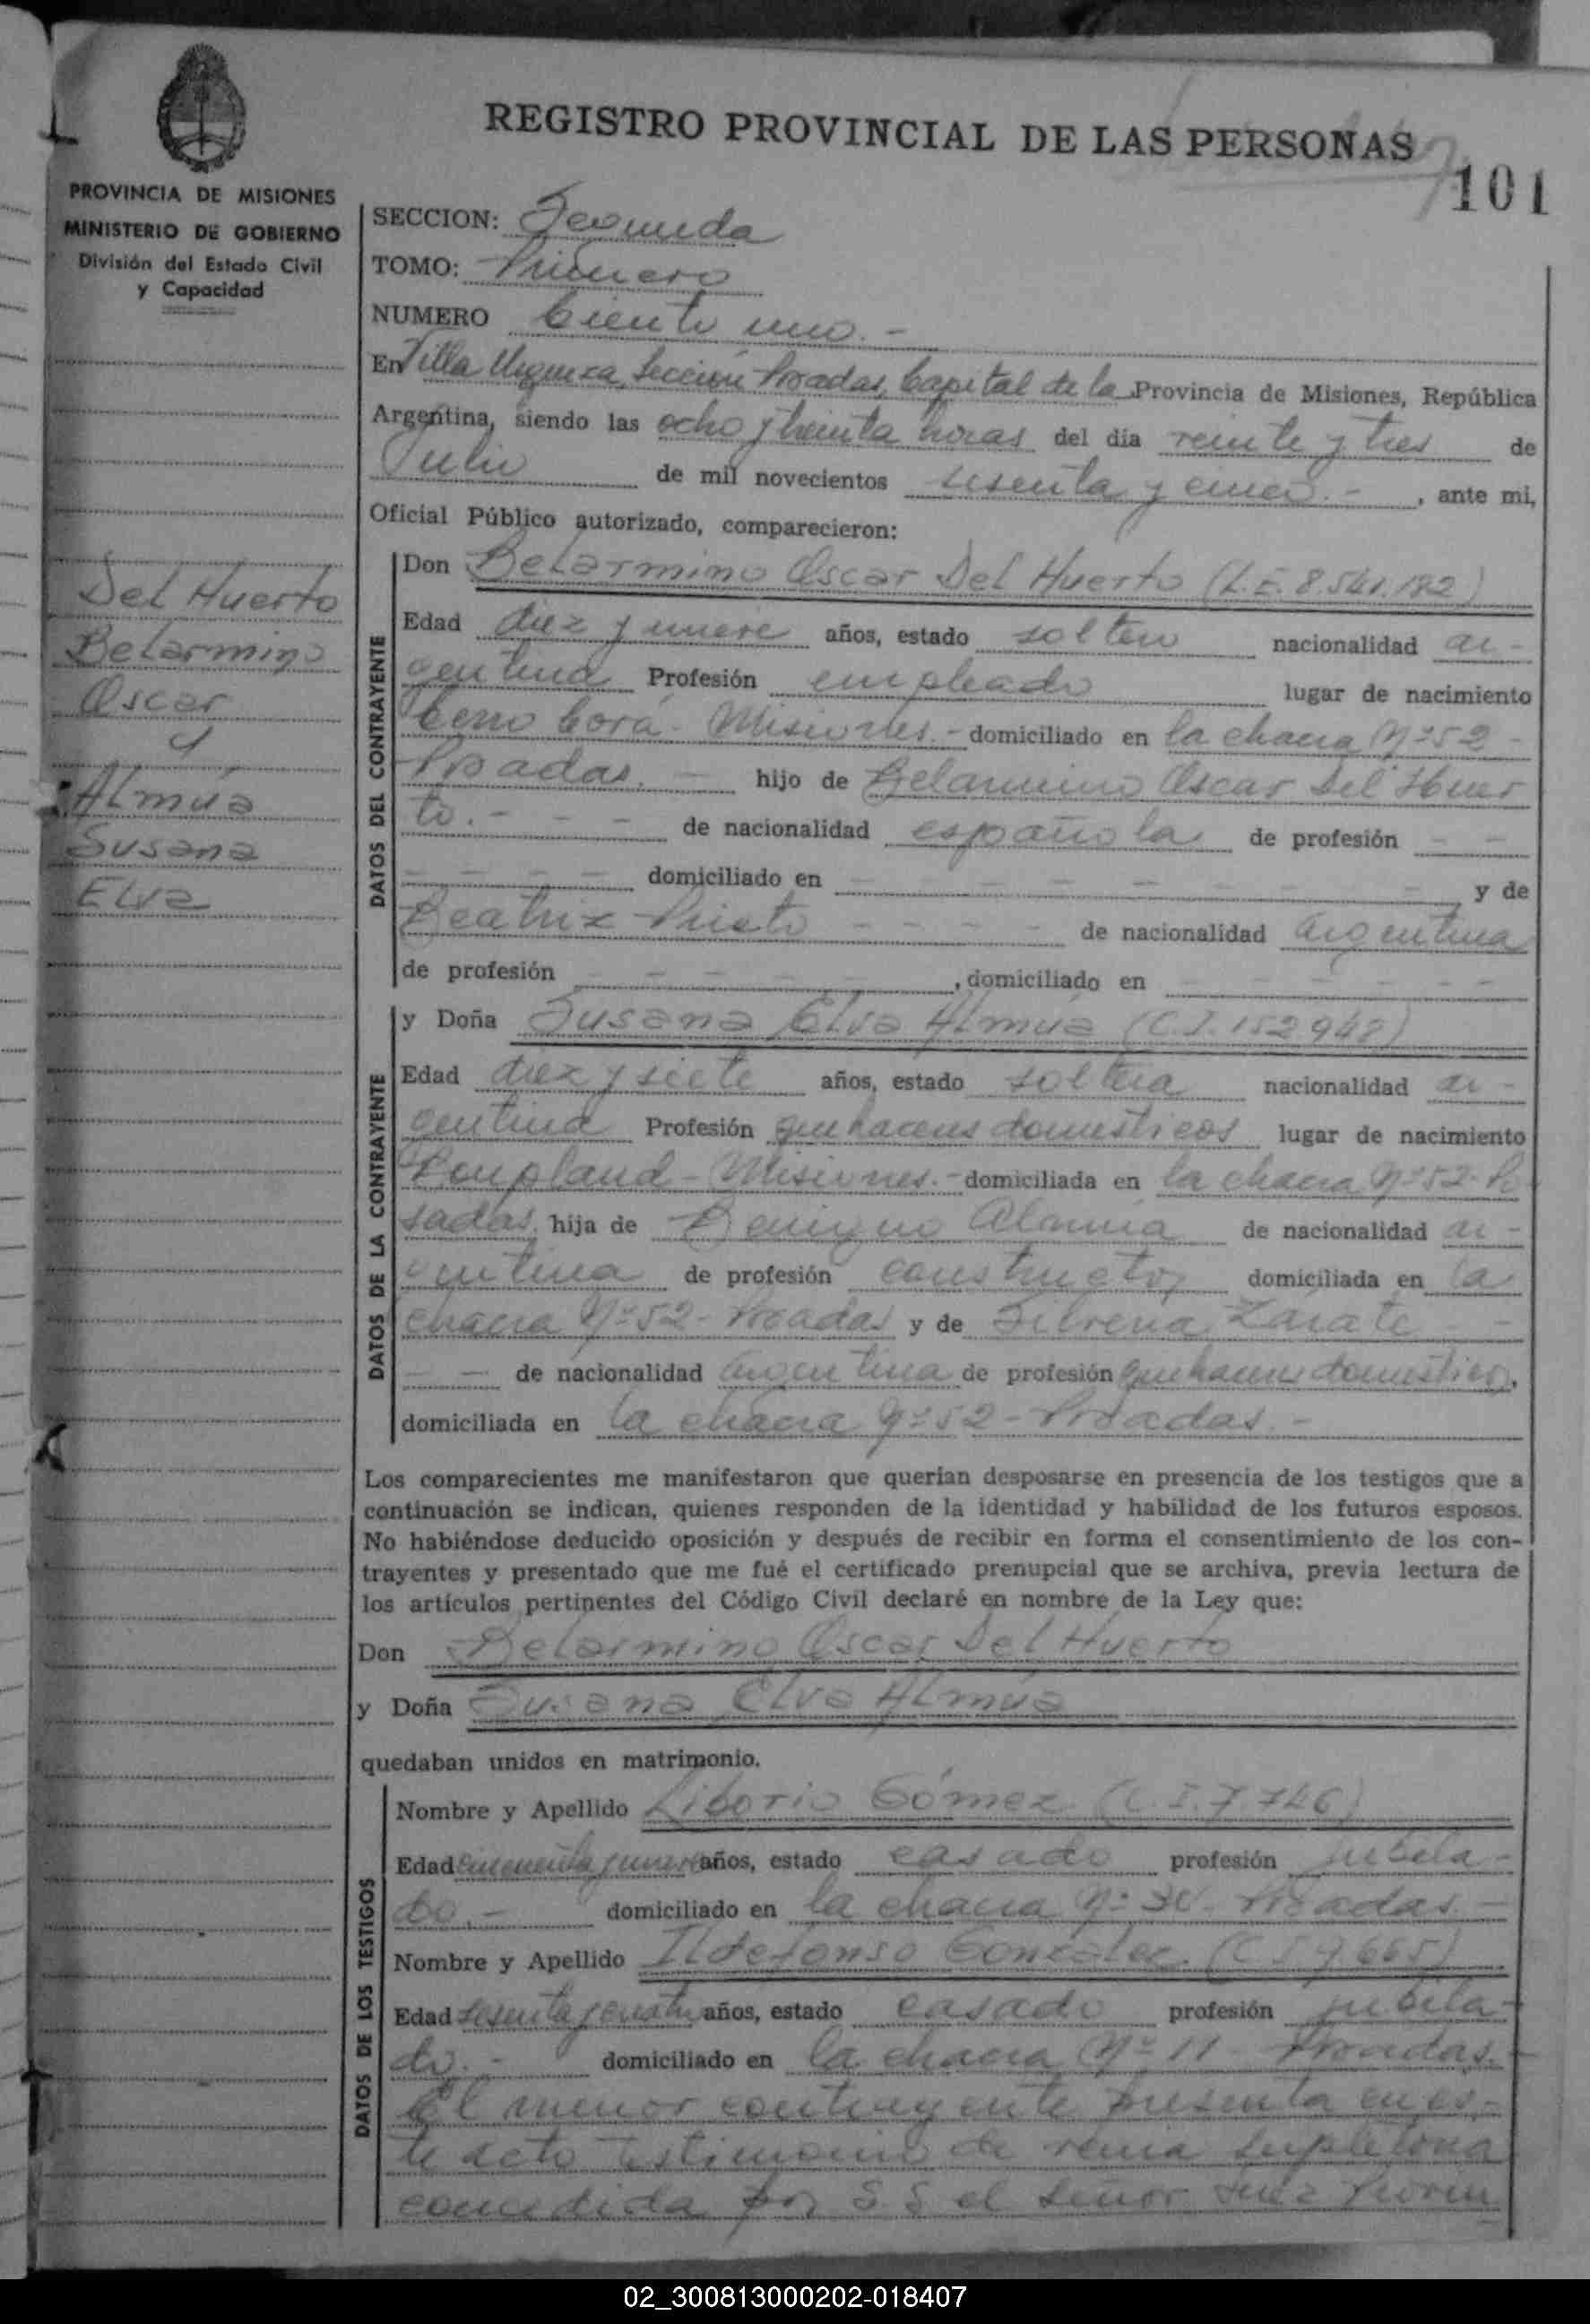 REGISTRO PROVINCIAL DE LAS PERSONAS
101
PROVINCIA DE MISIONES
MINISTERIO DE GOBIERNO
División del Estado Civil
y Capacidad
SECCION: Segunda
TOMO: Primero
NUMERO Ciento uno.-
En Villa Urquiza, Sección Posadas, Capital de la Provincia de Misiones, República
Argentina, siendo las ocho y treinta horas del día veinte y tres de
Julio de mil novecientos sesenta y cinco.- , ante mi,
Oficial Público autorizado, comparecieron:
Del Huerto
Belarmino
Oscar
y
Almúa
Susana
Elva
DATOS DEL CONTRAYENTE
Don Belarmino Oscar Del Huerto (L.E. 8.541.182)
Edad diez y nueve años, estado soltero nacionalidad ar-
gentina Profesión empleado lugar de nacimiento
Cerro Corá - Misiones.- domiciliado en la chacra Nº 52-
Posadas.- hijo de Belarmino Oscar Del Huer
to.- - - - de nacionalidad española de profesión - -
- - - - domiciliado en - - - - - - - y de
Beatriz Prieto - - - - de nacionalidad argentina
de profesión - - - - - , domiciliado en - - - - - -
DATOS DE LA CONTRAYENTE
y Doña Susana Elva Almúa (C.I. 152948)
Edad diez y siete años, estado soltera nacionalidad ar-
gentina Profesión quehaceres domesticos lugar de nacimiento
Bonpland - Misiones.- domiciliada en la chacra Nº 52- Po
sadas, hija de Benigno Almúa de nacionalidad ar-
gentina de profesión constructor domiciliada en la
chacra Nº 52- Posadas y de Silveria Zárate - -
- - de nacionalidad argentina de profesión quehaceres domesticos,
domiciliada en la chacra Nº 52 - Posadas.-
Los comparecientes me manifestaron que querían desposarse en presencia de los testigos que a
continuación se indican, quienes responden de la identidad y habilidad de los futuros esposos.
No habiéndose deducido oposición y después de recibir en forma el consentimiento de los con-
trayentes y presentado que me fué el certificado prenupcial que se archiva, previa lectura de
los artículos pertinentes del Código Civil declaré en nombre de la Ley que:
Don Belarmino Oscar Del Huerto
y Doña Susana Elva Almúa
quedaban unidos en matrimonio.
DATOS DE LOS TESTIGOS
Nombre y Apellido Liborio Gómez (C.I. 7.746)
Edad cincuenta y nueve años, estado casado profesión jubila-
do.- domiciliado en la chacra Nº 30- Posadas.-
Nombre y Apellido Ildefonso González. (C.I. 9.665)
Edad sesenta y cuatro años, estado casado profesión jubila-
do.- domiciliado en la chacra Nº 11 - Posadas.-
El menor contrayente presenta en es-
te acto testimonio de venia supletoria
concedida por S.S el señor Juez Provin
02_300813000202-018407